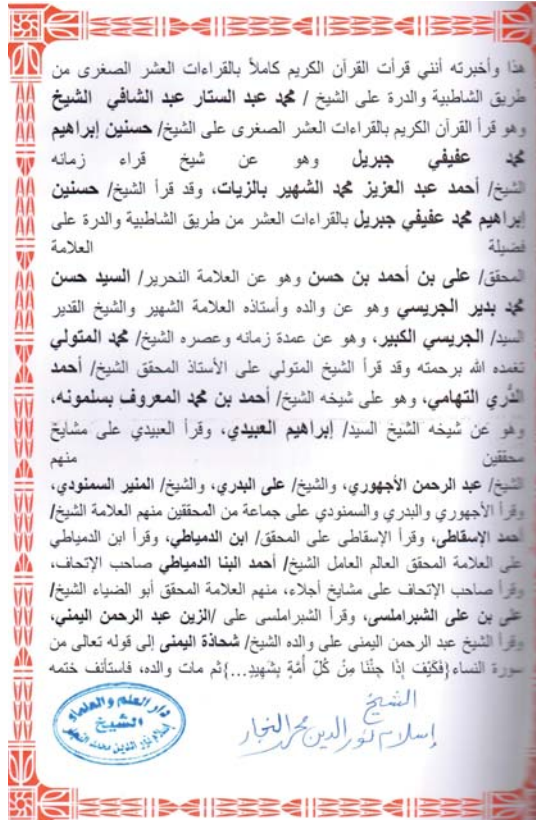 هذا وأخبرته أنني قرأت القرآن الكريم كاملاً بالقراءات العشر الصغرى من
طريق الشاطبية والدرة على الشيخ / محمد عبد الستار عبد الشافي الشيخ
وهو قرأ القرآن الكريم بالقراءات العشر الصغرى على الشيخ/ حسنين إبراهيم
محمد عفيفي جبريل وهو عن شيخ قراء زمانه
الشيخ/ أحمد عبد العزيز محمد الشهير بالزيات، وقد قرأ الشيخ/ حسنين
إبراهيم محمد عفيفي جبريل بالقراءات العشر من طريق الشاطبية والدرة على
فضيلة العلامة
المحقق/ على بن أحمد بن حسن وهو عن العلامة النحرير/ السيد حسن
محمد بدير الجريسي وهو عن والده وأستاذه العلامة الشهير والشيخ القدير
السيد/ الجريسي الكبير، وهو عن عمدة زمانه وعصره الشيخ/ محمد المتولي
تغمده الله برحمته وقد قرأ الشيخ المتولي على الأستاذ المحقق الشيخ/ أحمد
الدُّري التهامي، وهو على شيخه الشيخ/ أحمد بن محمد المعروف بسلمونه،
وهو عن شيخه الشيخ السيد/ إبراهيم العبيدي، وقرأ العبيدي على مشايخ
محققين منهم
الشيخ/ عبد الرحمن الأجهوري، والشيخ/ على البدري، والشيخ/ المنير السمنودي،
وقرأ الأجهوري والبدري والسمنودي على جماعة من المحققين منهم العلامة الشيخ/
أحمد الإسقاطى، وقرأ الإسقاطى على المحقق/ ابن الدمياطي، وقرأ ابن الدمياطي
على العلامة المحقق العالم العامل الشيخ/ أحمد البنا الدمياطي صاحب الإتحاف،
وقرأ صاحب الإتحاف على مشايخ أجلاء، منهم العلامة المحقق أبو الضياء الشيخ/
على بن على الشبراملسى، وقرأ الشبراملسى على /الزين عبد الرحمن اليمني،
وقرأ الشيخ عبد الرحمن اليمنى على والده الشيخ/ شحاذة اليمنى إلى قوله تعالى من
سورة النساء{فَكَيْفَ إِذَا جِئْنَا مِنْ كُلِّ أُمَّةٍ بِشَهِيدٍ...}ثم مات والده، فاستأنف ختمه
الشيخ
إسلام نور الدين محمد النجار
دار العلم والعلماء
الشيخ
إسلام نور الدين محمد النجار